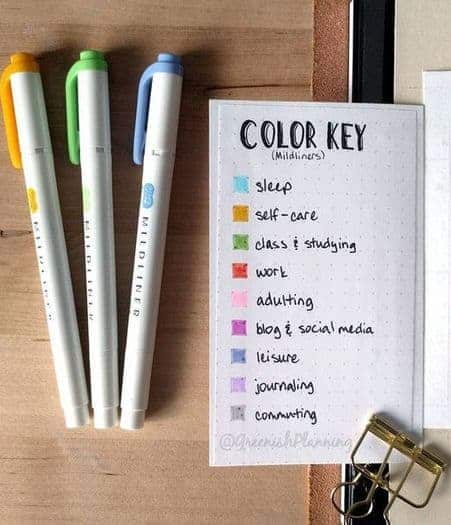 MILDLINER
MILDLINER
MILDLINER
COLOR KEY
(Mildliners)
sleep
self-care
class & studying
work
adulting
blog & social media
leisure
journaling
commuting
@GreenishPlanning